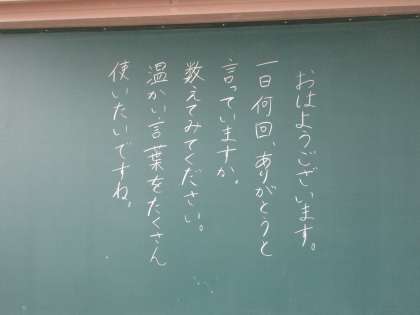 おはようございます。
一日何回、ありがとうと
言っていますか。
数えてみてください。
温かい言葉をたくさん
使いたいですね。